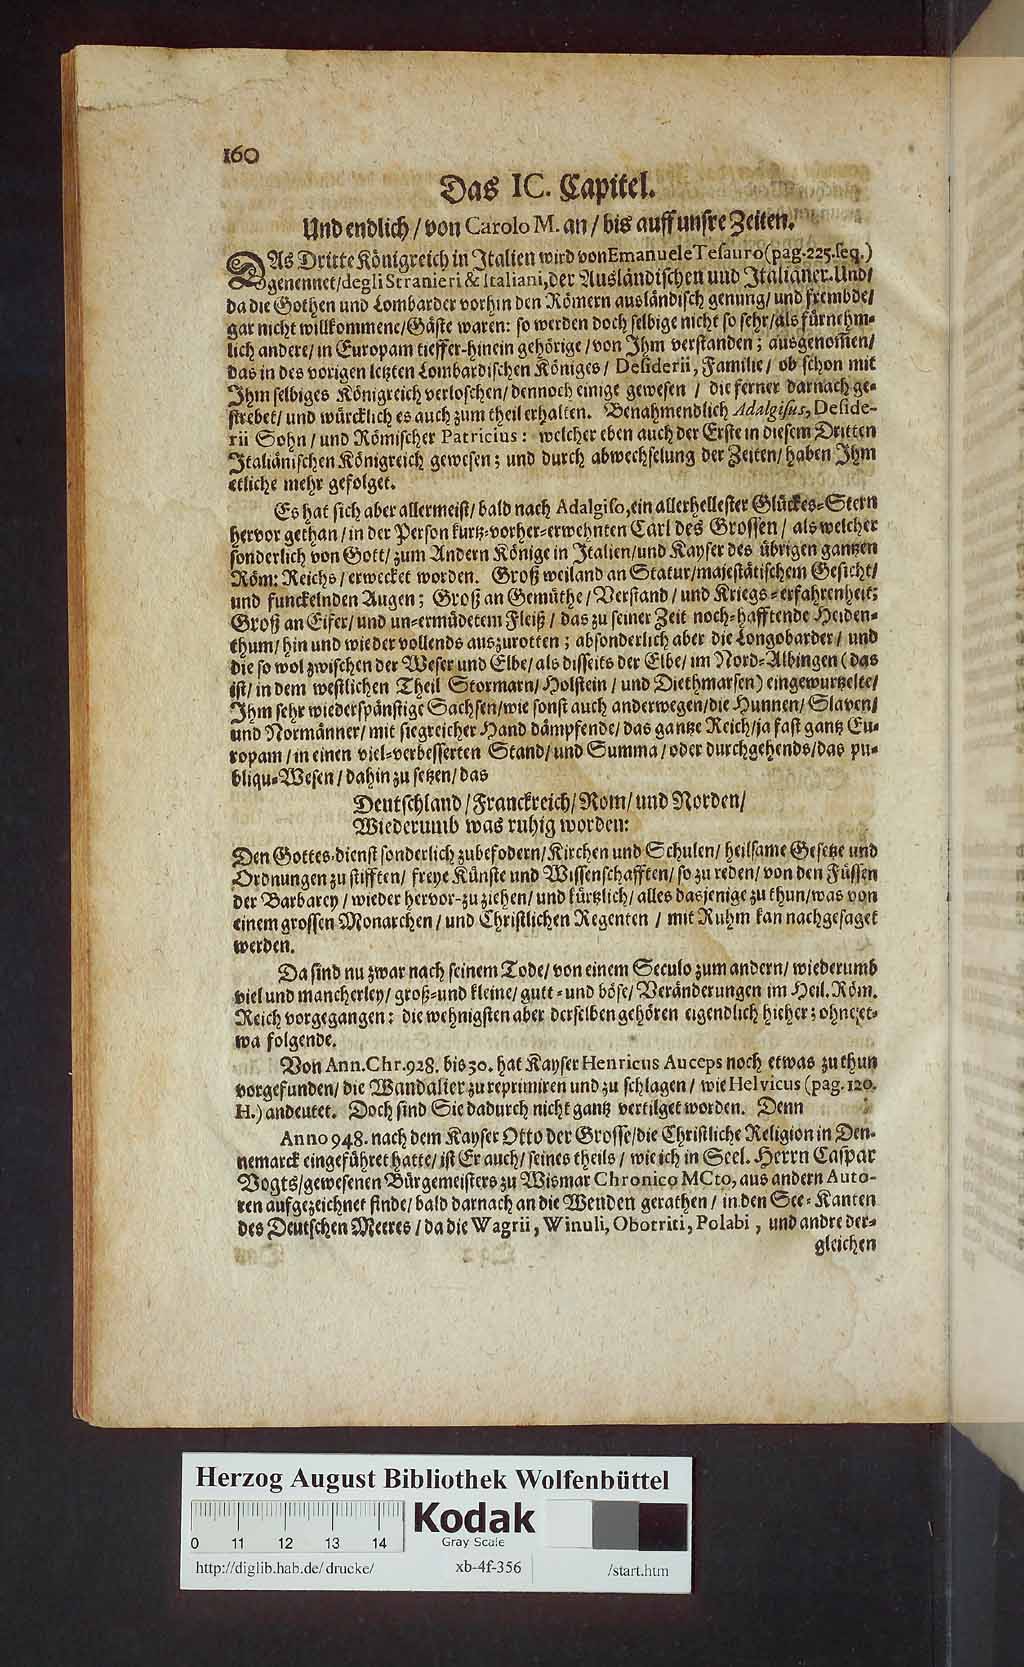 160
Das IC. Capitel.
Und endlich / von Carolo M. an / bis auff unsre Zeiten.
DAs Dritte Königreich in Italien wird von Emanuele Tesauro (pag. 225. seq.)
genennet / degli Stranieri & Italiani, der Ausländischen und Italiäner. Und /
da die Gothen und Lombarder vorhin den Römern ausländisch genung / und frembde /
gar nicht willkommene / Gäste waren: so werden doch selbige nicht so sehr / als fürnehm-
lich andere / in Europam tieffer-hinein gehörige / von Ihm verstanden; ausgenom̃en /
das in des vorigen letzten Lombardischen Königes / Desiderii, Familie / ob schon mit
Ihm selbiges Königreich verloschen / dennoch einige gewesen / die ferner darnach ge-
strebet / und würcklich es auch zum theil erhalten. Benahmendlich Adalgisus, Deside-
rii Sohn / und Römischer Patricius: welcher eben auch der Erste in diesem Dritten
Italiänischen Königreich gewesen; und durch abwechselung der Zeiten / haben Ihm
etliche mehr gefolget.
Es hat sich aber allermeist / bald nach Adalgiso, ein allerhellester Glückes-Stern
hervor gethan / in der Person kurtz-vorher-erwehnten Carl des Grossen / als welcher
sonderlich von Gott / zum Andern Könige in Italien / und Kayser des übrigen gantzen
Röm: Reichs / erwecket worden. Groß weiland an Statur / majestätischem Gesicht /
und funckelnden Augen; Groß an Gemüthe / Verstand / und Kriegs-erfahrenheit;
Groß an Eifer / und un-ermüdetem Fleiß / das zu seiner Zeit noch-hafftende Heiden-
thum / hin und wieder vollends auszurotten; absonderlich aber die Longobarder / und
die so wol zwischen der Weser und Elbe / als disseits der Elbe / im Nord-Albingen (das
ist / in dem westlichen Theil Stormarn / Holstein / und Diethmarsen) eingewurtzelte /
Ihm sehr wiederspänstige Sachsen / wie sonst auch anderwegen / die Hunnen / Slaven /
und Normänner / mit siegreicher Hand dämpfende / das gantze Reich / ja fast gantz Eu-
ropam / in einen viel-verbesserten Stand / und Summa / oder durchgehends / das pu-
bliqu-Wesen / dahin zu setzen / das
Deutschland / Franckreich / Rom / und Norden /
Wiederumb was ruhig worden:
Den Gottes-dienst sonderlich zubefodern / Kirchen und Schulen / heilsame Gesetze und
Ordnungen zu stifften / freye Künste und Wissenschafften / so zu reden / von den Füssen
der Barbarey / wieder hervor-zu ziehen / und kürtzlich / alles dasjenige zu thun / was von
einem grossen Monarchen / und Christlichen Regenten / mit Ruhm kan nachgesaget
werden.
Da sind nu zwar nach seinem Tode / von einem Seculo zum andern / wiederumb
viel und mancherley / groß- und kleine / gutt- und böse / Veränderungen im Heil. Röm.
Reich vorgegangen: die wehnigsten aber derselben gehören eigendlich hieher; ohne et-
wa folgende.
Von Ann. Chr. 928. bis 30. hat Kayser Henricus Auceps noch etwas zu thun
vorgefunden / die Wandalier zu reprimiren und zu schlagen / wie Helvicus (pag. 120.
H.) andeutet. Doch sind Sie dadurch nicht gantz vertilget worden. Denn
Anno 948. nach dem Kayser Otto der Grosse / die Christliche Religion in Den-
nemarck eingeführet hatte / ist Er auch / seines theils / wie ich in Seel. Herrn Caspar
Vogts / gewesenen Bürgemeisters zu Wismar Chronico MCto, aus andern Auto-
ren aufgezeichnet finde / bald darnach an die Wenden gerathen / in den See-Kanten
des Deutschen Meeres / da die Wagrii, Winuli, Obotriti, Polabi, und andre der-
gleichen
Herzog August Bibliothek Wolfenbüttel
0 11 12 13 14
Kodak
Gray Scale
http://diglib.hab.de/drucke/ xb-4f-356 /start.htm